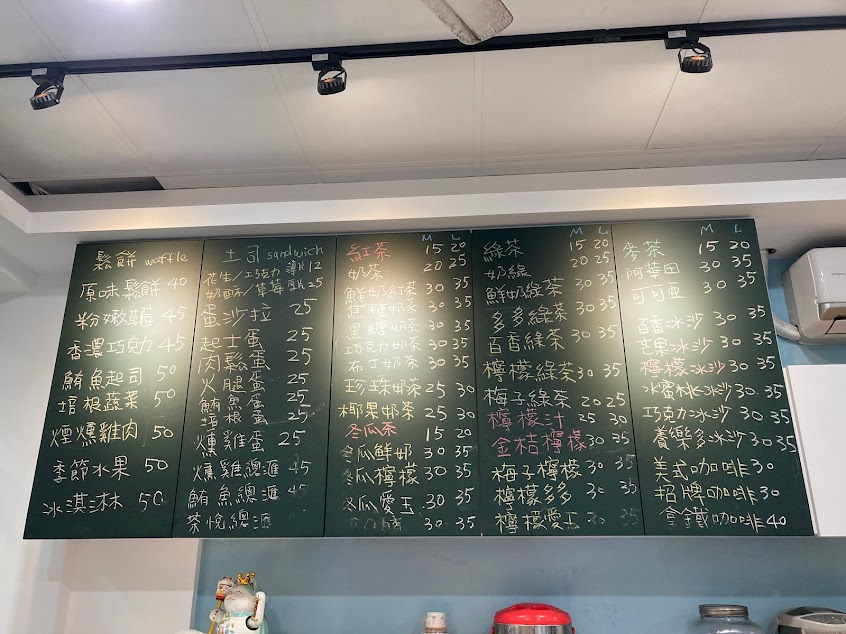 鬆餅 waffle
原味鬆餅 40
粉嫩草莓 45
香濃巧克力 45
鮪魚起司 50
培根蔬菜 50
煙燻雞肉 50
季節水果 50
冰淇淋 50
土司 sandwich
花生/巧克力 薄片12
奶酥/草莓 厚片25
蛋沙拉 25
起士蛋 25
肉鬆蛋 25
火腿蛋 25
鮪魚蛋 25
培根蛋 25
燻雞蛋 25
燻雞總滙 45
鮪魚總滙 45
茶悅總滙
M L
紅茶 15 20
奶茶 20 25
鮮奶紅茶 30 35
焦糖奶茶 30 35
黑糖奶茶 30 35
巧克力奶茶 30 35
布丁奶茶 30 35
珍珠奶茶 25 30
椰果奶茶 25 30
冬瓜茶 15 20
冬瓜鮮奶 30 35
冬瓜檸檬 30 35
冬瓜愛玉 30 35
30 35
M L
綠茶 15 20
奶綠 20 25
鮮奶綠茶 30 35
多多綠茶 30 35
百香綠茶 30 35
檸檬綠茶 30 35
梅子綠茶 20 25
檸檬汁 25 30
金桔檸檬 30 35
梅子檸檬 30 35
檸檬多多 30 35
檸檬愛玉 30 35
M L
麥茶 15 20
阿華田 30 35
可可亞 30 35
百香冰沙 30 35
芒果冰沙 30 35
檸檬冰沙 30 35
水蜜桃冰沙 30 35
巧克力冰沙 30 35
養樂多冰沙 30 35
美式咖啡 30
招牌咖啡 30
拿鐵咖啡 40